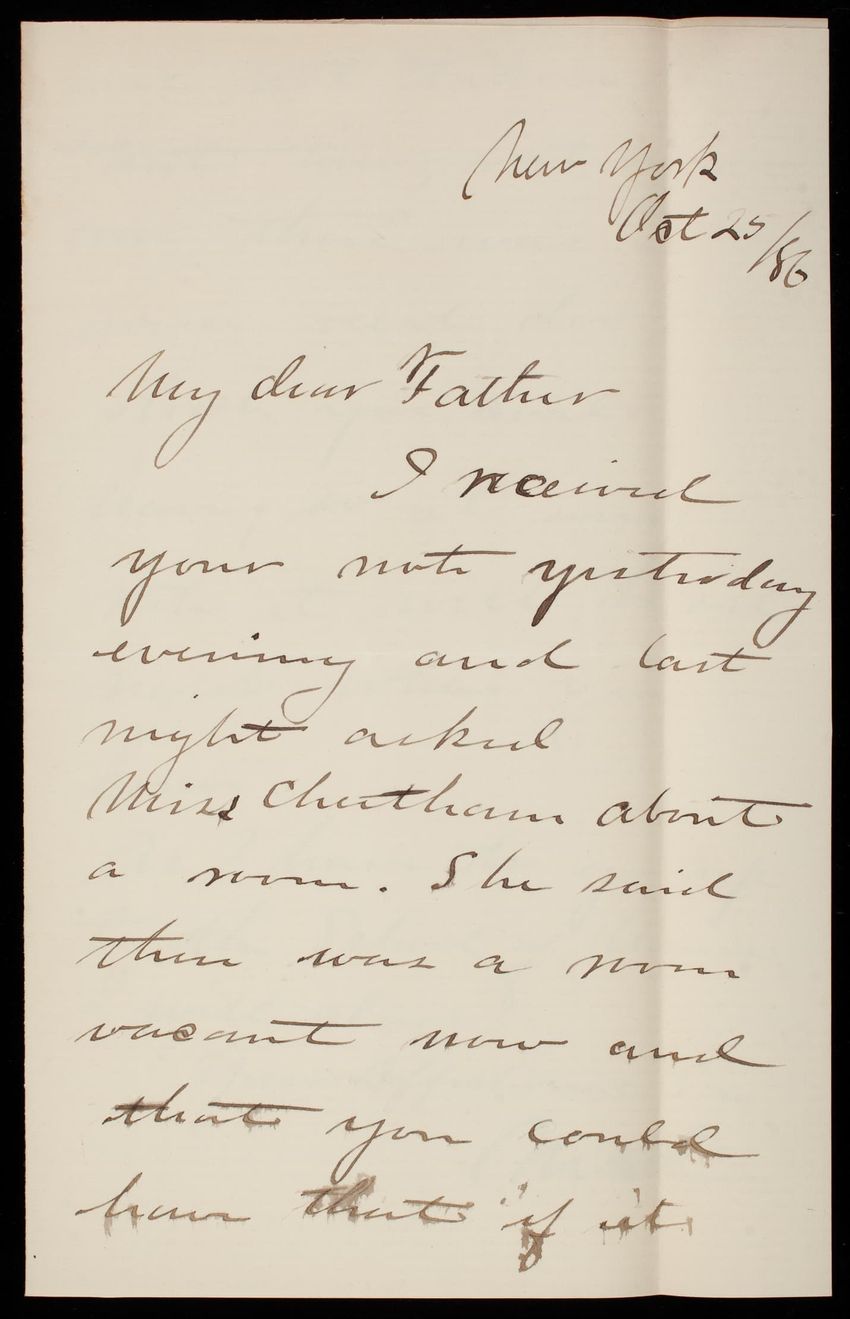 New York
Oct 25/86
My dear Father
I received
your note yesterday
evening and last
night asked
Miss Cheetham about
a room. She said
there was a room
vacant now and
that you could
have that if it